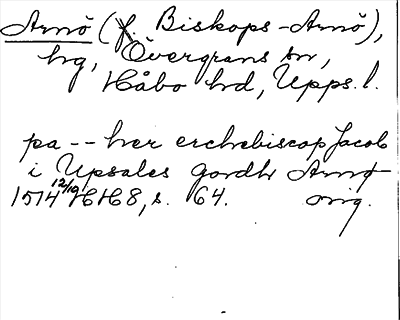 Arnö (f. Biskops-Arnö),
hg, Övergrans sn,
Håbo hd, Upps. l.
pa -- her erchebiscop Jacob
i Upsales gordh Arnø
1514 12/10 HH8, s. 64. orig.